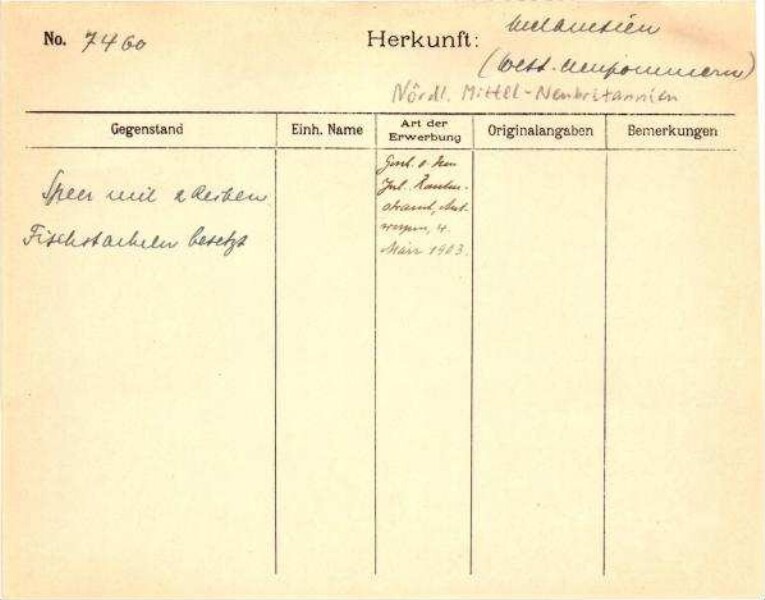 No. 7460
Herkunft: Melanesien
(West-Neupommern)
Nördl. Mittel-Neubritannien
Gegenstand
Einh. Name
Art der Erwerbung
Originalangaben
Bemerkungen
Speer mit 2 Reihen
Fischstacheln besetzt
Gesch. v. Herrn
Jul.
4.
März 1903.